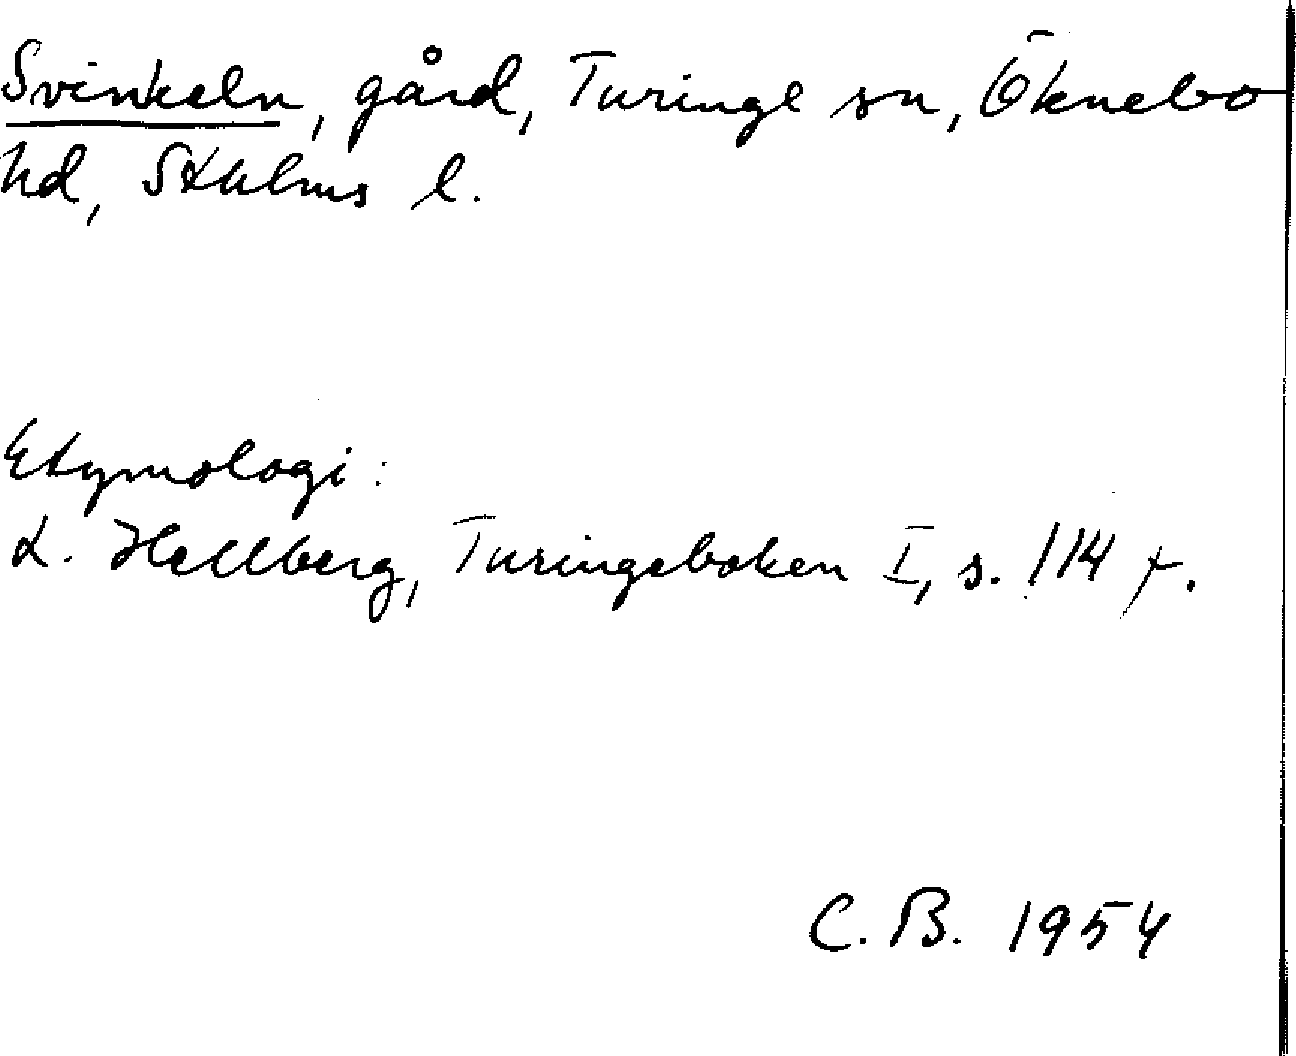 Svinkeln, gård, Turinge sn, Öknebo
hd, Sthlms l.
Etymologi:
L. Hellberg, Turingeboken I, s. 114 f.
C. B. 1954